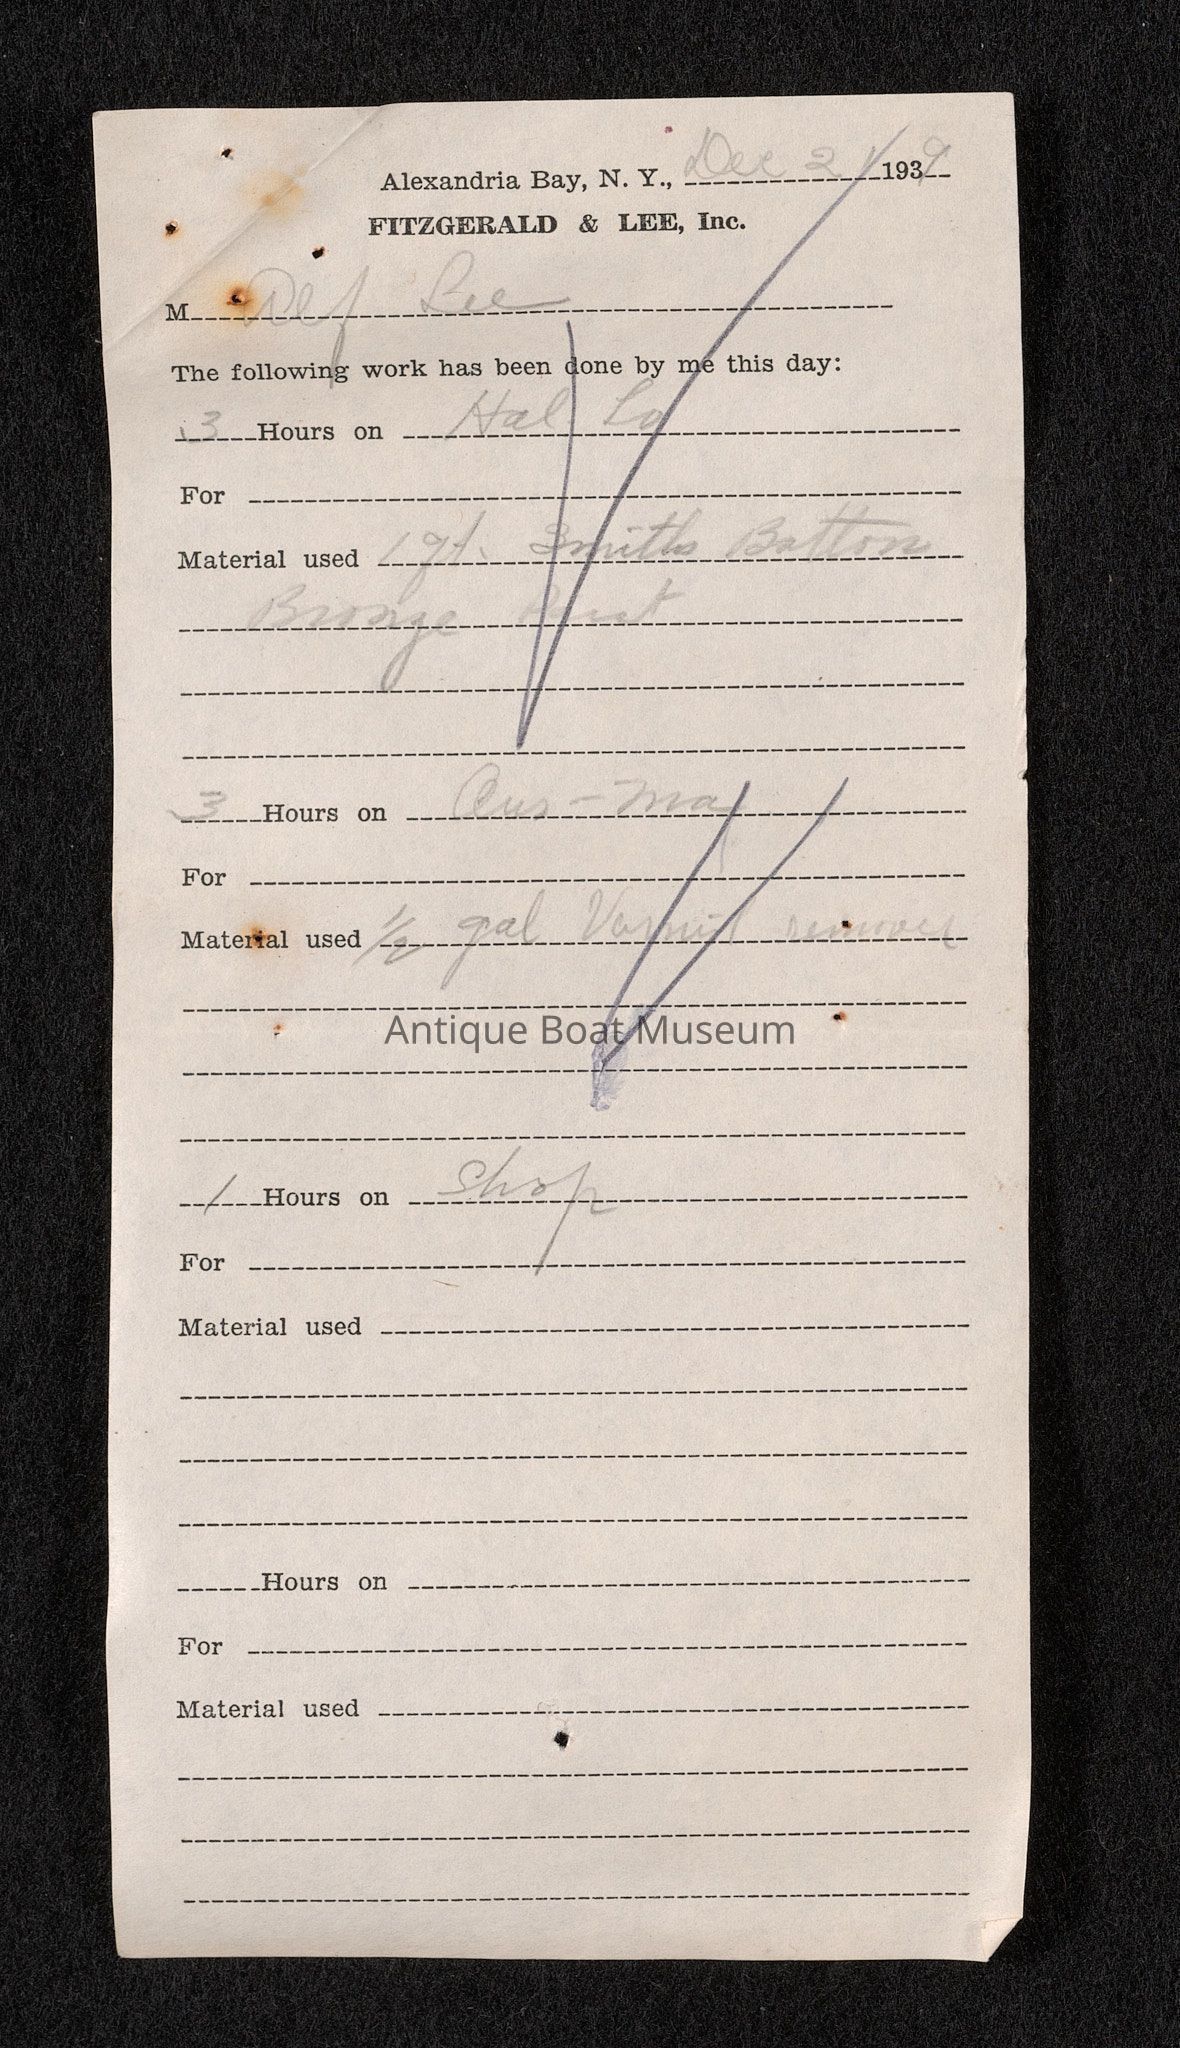 Alexandria Bay, N. Y., Dec 2 1939
FITZGERALD & LEE, Inc.
M Def Lee
The following work has been done by me this day:
3 Hours on Hal Lo
For
Material used 1 qt. Smiths Bottom
Bronze
3 Hours on
For
Material used 1/2 gal Varnish remover
Antique Boat Museum
1 Hours on Shop
For
Material used
Hours on
For
Material used